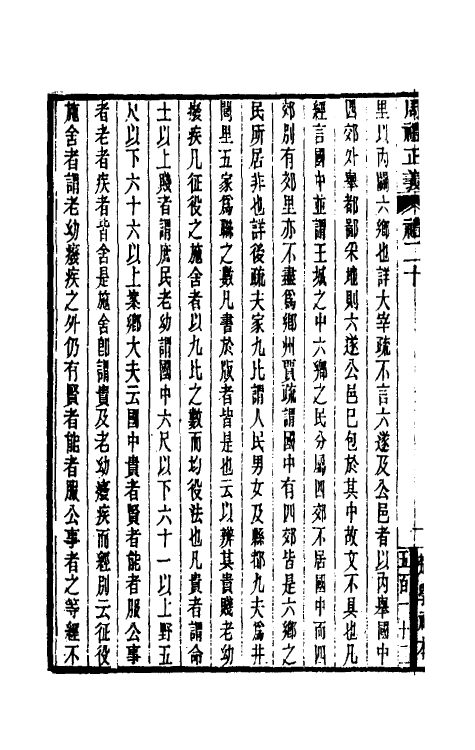 周禮正義 禮二十
里以內關六鄉也詳大宰疏不言六遂及公邑者以內舉國中
四郊外舉都鄙采地則六遂公邑已包於其中故文不具也凡
經言國中並謂王城之中六鄉之民分屬四郊不居國中而四
郊別有郊里亦不盡爲鄉州賈疏謂國中有四郊皆是六鄉之
民所居非也詳後疏夫家九比謂人民男女及縣都九夫爲井
閭里五家爲聯之數凡書於版者皆是也云以辨其貴賤老幼
癈疾凡征役之施舍者以九比之數而均役法也凡貴者謂命
士以上賤者謂庶民老幼謂國中六尺以下六十一以上野五
尺以下六十六以上案鄉大夫云國中貴者賢者能者服公事
者老者疾者皆舍是施舍卽謂貴及老幼癈疾而經別云征役
施舍者謂老幼癈疾之外仍有賢者能者服公事者之等經不
五百一十二